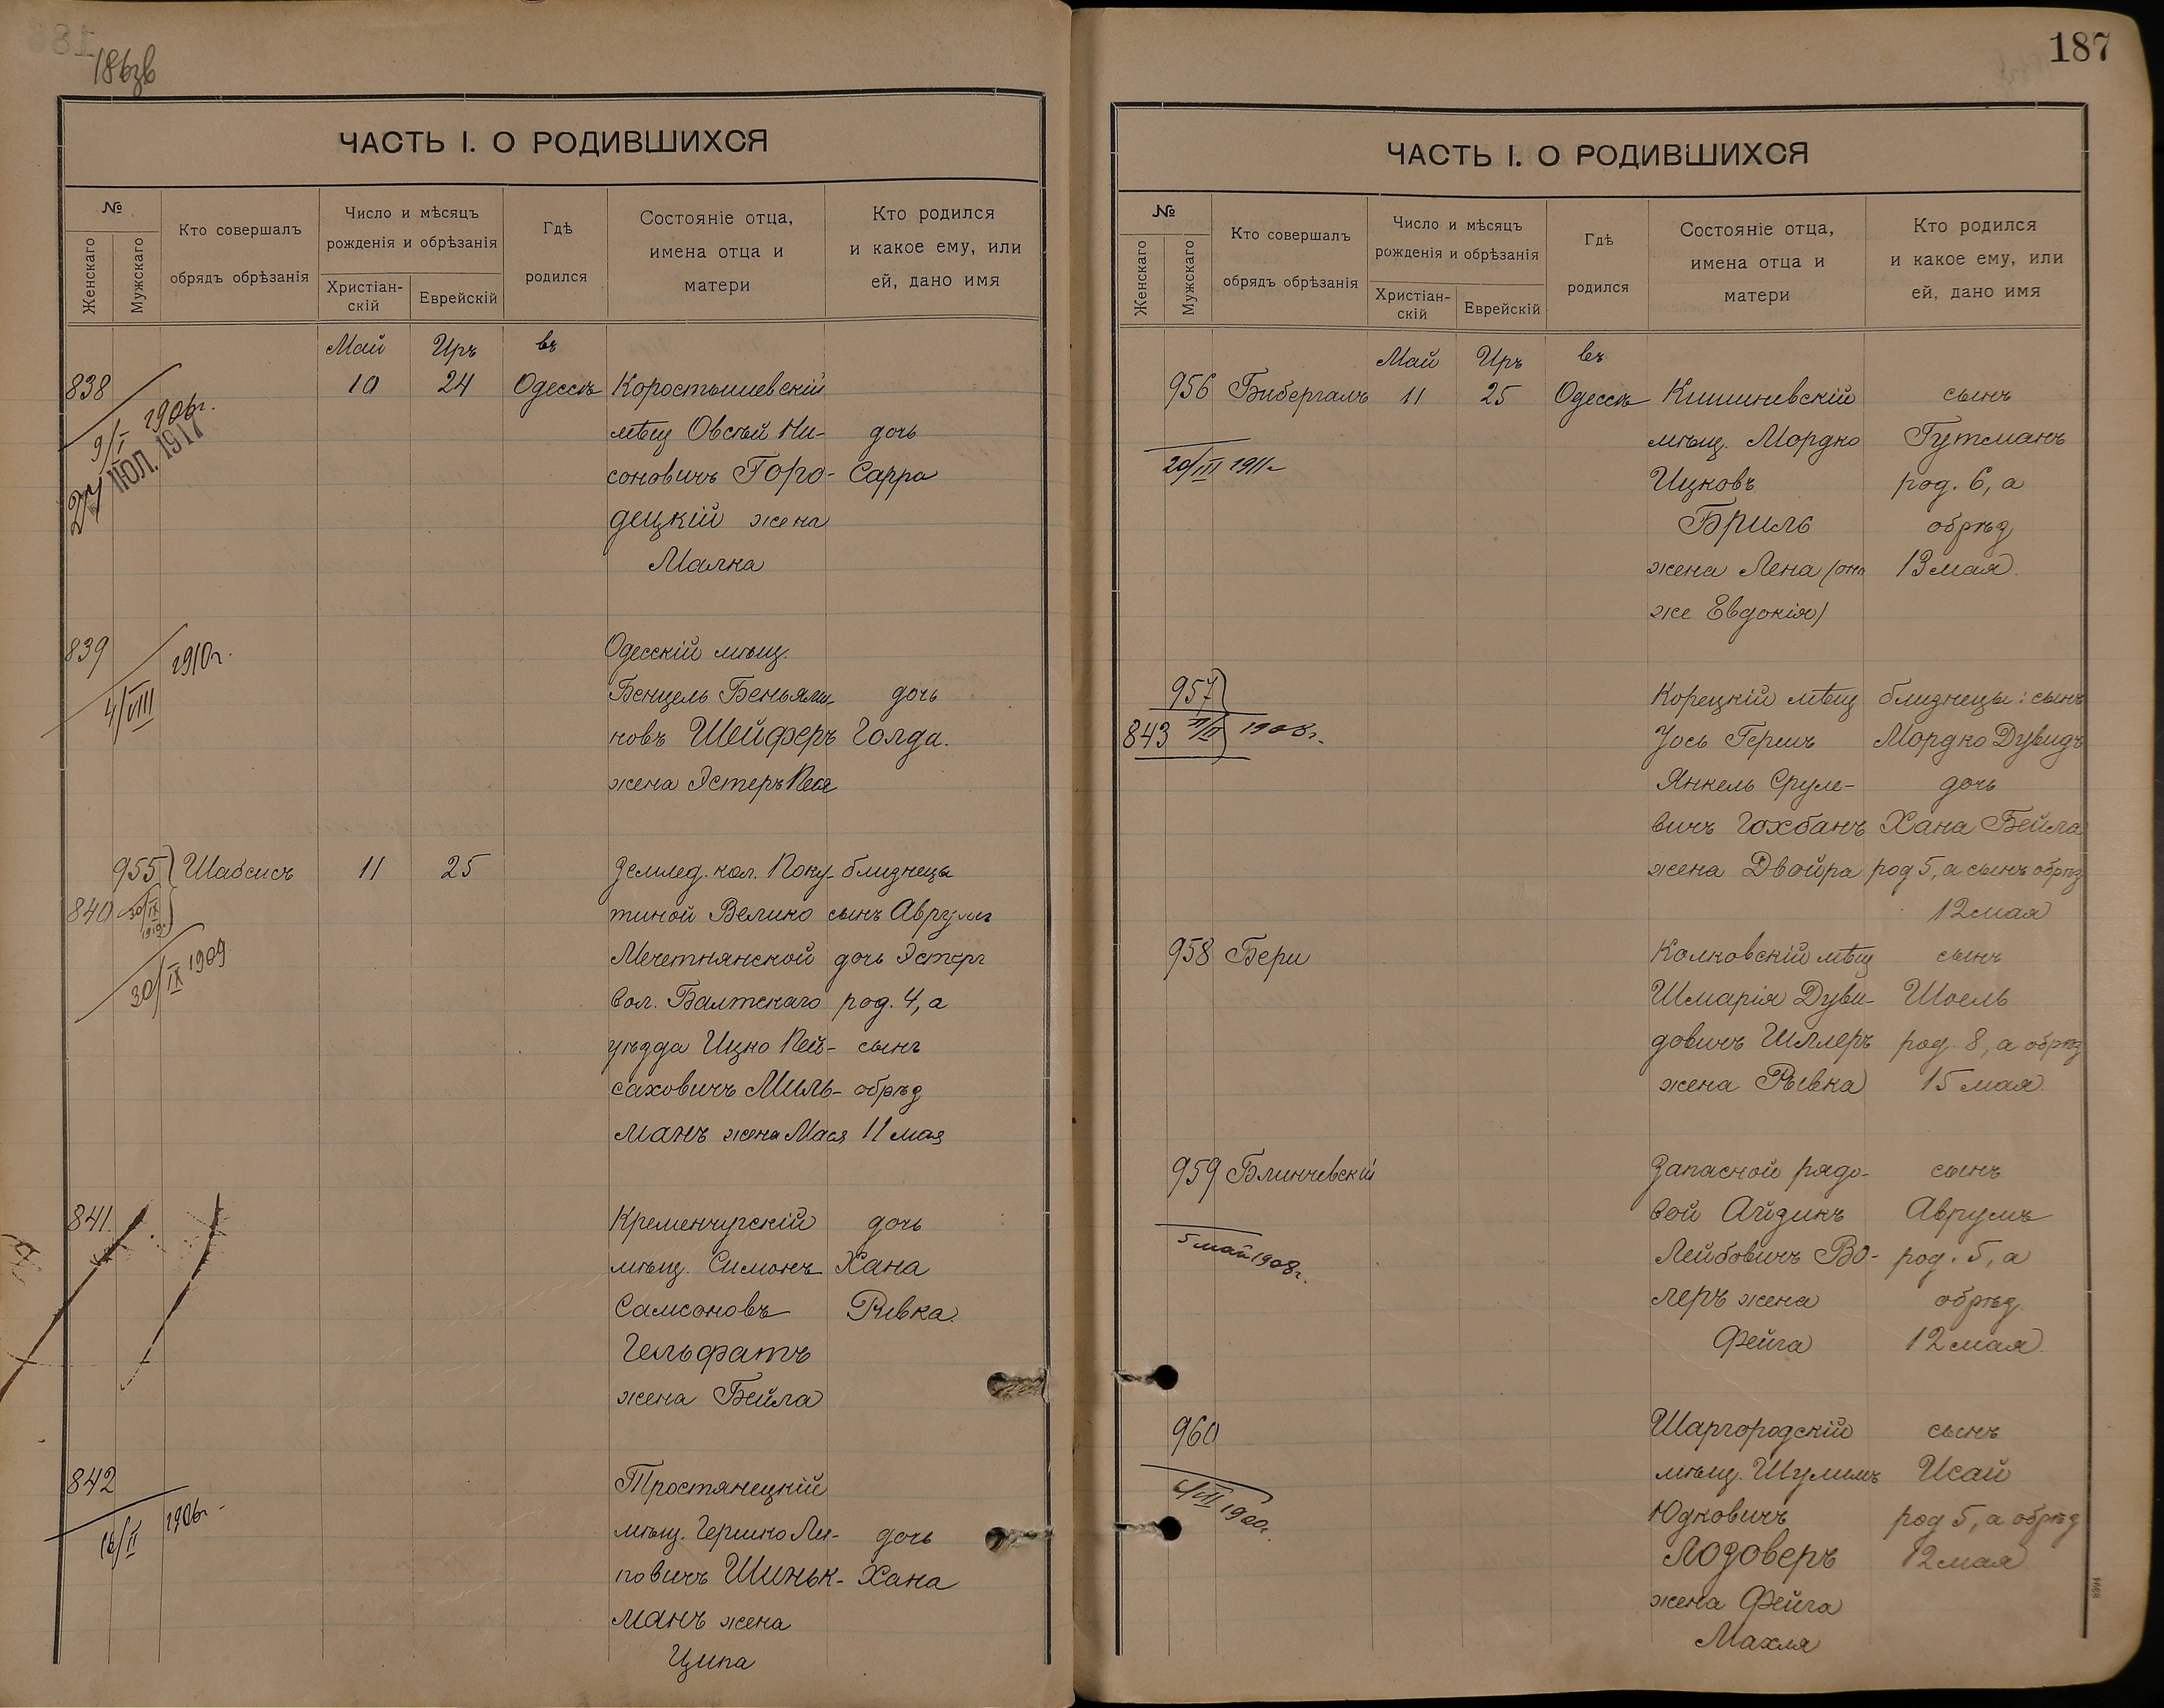 186зв
ЧАСТЬ I. О РОДИВШИХСЯ
№
Женскаго
Мужскаго
Кто совершалъ
обрядъ обрѣзанія
Число и мѣсяцъ
рожденія и обрѣзанія
Христіан-
скій
Еврейскій
Гдѣ
родился
Состояніе отца,
имена отца и
матери
Кто родился
и какое ему, или
ей, дано имя
Май Иръ въ
838 10 24 Одессѣ Коростышевскій
9/I 1906г. мѣщ Овсѣй Ни- дочь
ІЮЛ. 1917 соновичъ Горо- Сарра
децкій жена
Малка
839 Одесскій мѣщ.
1910г. Бенцель Беньями- дочь
4/VIII новъ Шейферъ Голда.
жена Эстеръ Песя
955 Шабсисъ 11 25 Землед. кол. Поку- близнецы
840 30/IX 1919г. тиной Велико сынъ Аврумъ
30/IX 1909 Мечетнянской дочь Эстеръ
вол. Балтскаго род. 4, а
уѣзда Ицко Пей- сынъ
саховичъ Миль- обрѣз
манъ жена Мася 11 мая
841. Кременчугскій дочь
мѣщ. Симонъ Хана
Самсоновъ Ривка.
Гельфатъ
жена Бейла
842 Тростянецкій
16/II 1906г. мѣщ. Гершко Ли- дочь
повичъ Шиньк- Хана
манъ жена
Ципа
187
ЧАСТЬ I. О РОДИВШИХСЯ
№
Женскаго
Мужскаго
Кто совершалъ
обрядъ обрѣзанія
Число и мѣсяцъ
рожденія и обрѣзанія
Христіан-
скій
Еврейскій
Гдѣ
родился
Состояніе отца,
имена отца и
матери
Кто родился
и какое ему, или
ей, дано имя
Май Иръ въ
956 Бибергалъ 11 25 Одессѣ Кишиневскій сынъ
мѣщ. Мордко Гутманъ
20/III 1911г Ицковъ род. 6, а
Бриль обрѣз
жена Лена (она 13 мая.
же Евдокія)
957 Корецкій мѣщ близнецы: сынъ
843 11/II 1908г. Іось Гершъ Мордко Дувидъ
Янкель Сруле- дочь
вичъ Гохбанъ Хана Бейла
жена Двойра род 5, а сынъ обрѣз
12 мая
958 Бери Колковскій мѣщ сынъ
Шмарія Дуви- Шоель
довичъ Шллеръ род. 8, а обрѣз
жена Рывка 15 мая.
959 Блинчевскій Запасной рядо- сынъ
вой Айзикъ Аврумъ
5 май 1908г. Лейбовичъ Во- род. 5, а
леръ жена обрѣз.
Фейга 12 мая.
960 Шаргородскій сынъ
мѣщ. Шулимъ Исай
Юдковичъ род 5, а обрѣз
Лозоверъ 12 мая
жена Фейга
Махля